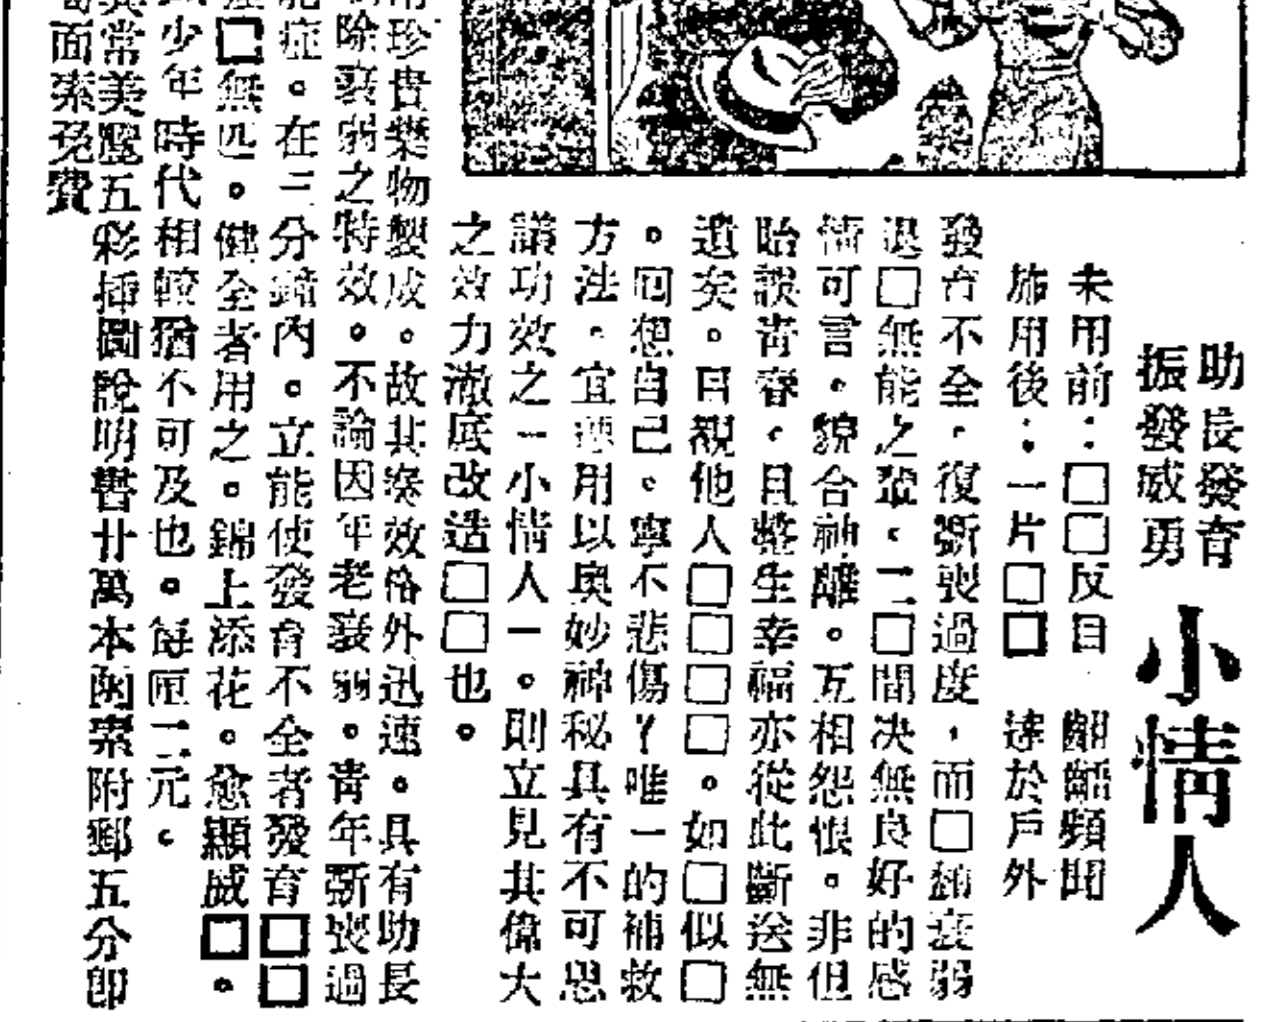 助長發育
振發威勇
小情人
未用前：□□反目　齟齬頻聞
施用後：一片□□　達於戶外
發育不全。復斲喪過度，而□類衰弱
退□無能之徵。二□間決無良好的感
情可言。貌合神離。互相怨恨。非但
貽誤青春。且整生幸福亦從此斷送無
遺矣。目覩他人□□□□。如□似□
。回想自己。寧不悲傷？唯一的補救
方法。宜速用以奧妙神秘具有不可思
議功效之「小情人」。則立見其偉大
之效力澈底改造□□也。
用珍貴藥物製成。故其湊效格外迅速。具有助長
除衰弱之特效。不論因年老衰弱。青年斲喪過
能症。在三分鐘內。立能使發育不全者發育□□
□無匹。健全者用之。錦上添花。愈顯威□。
少年時代相較猶不可及也。每匣二元。
異常美麗五彩插圖說明書廿萬本函索附郵五分即
面索免費